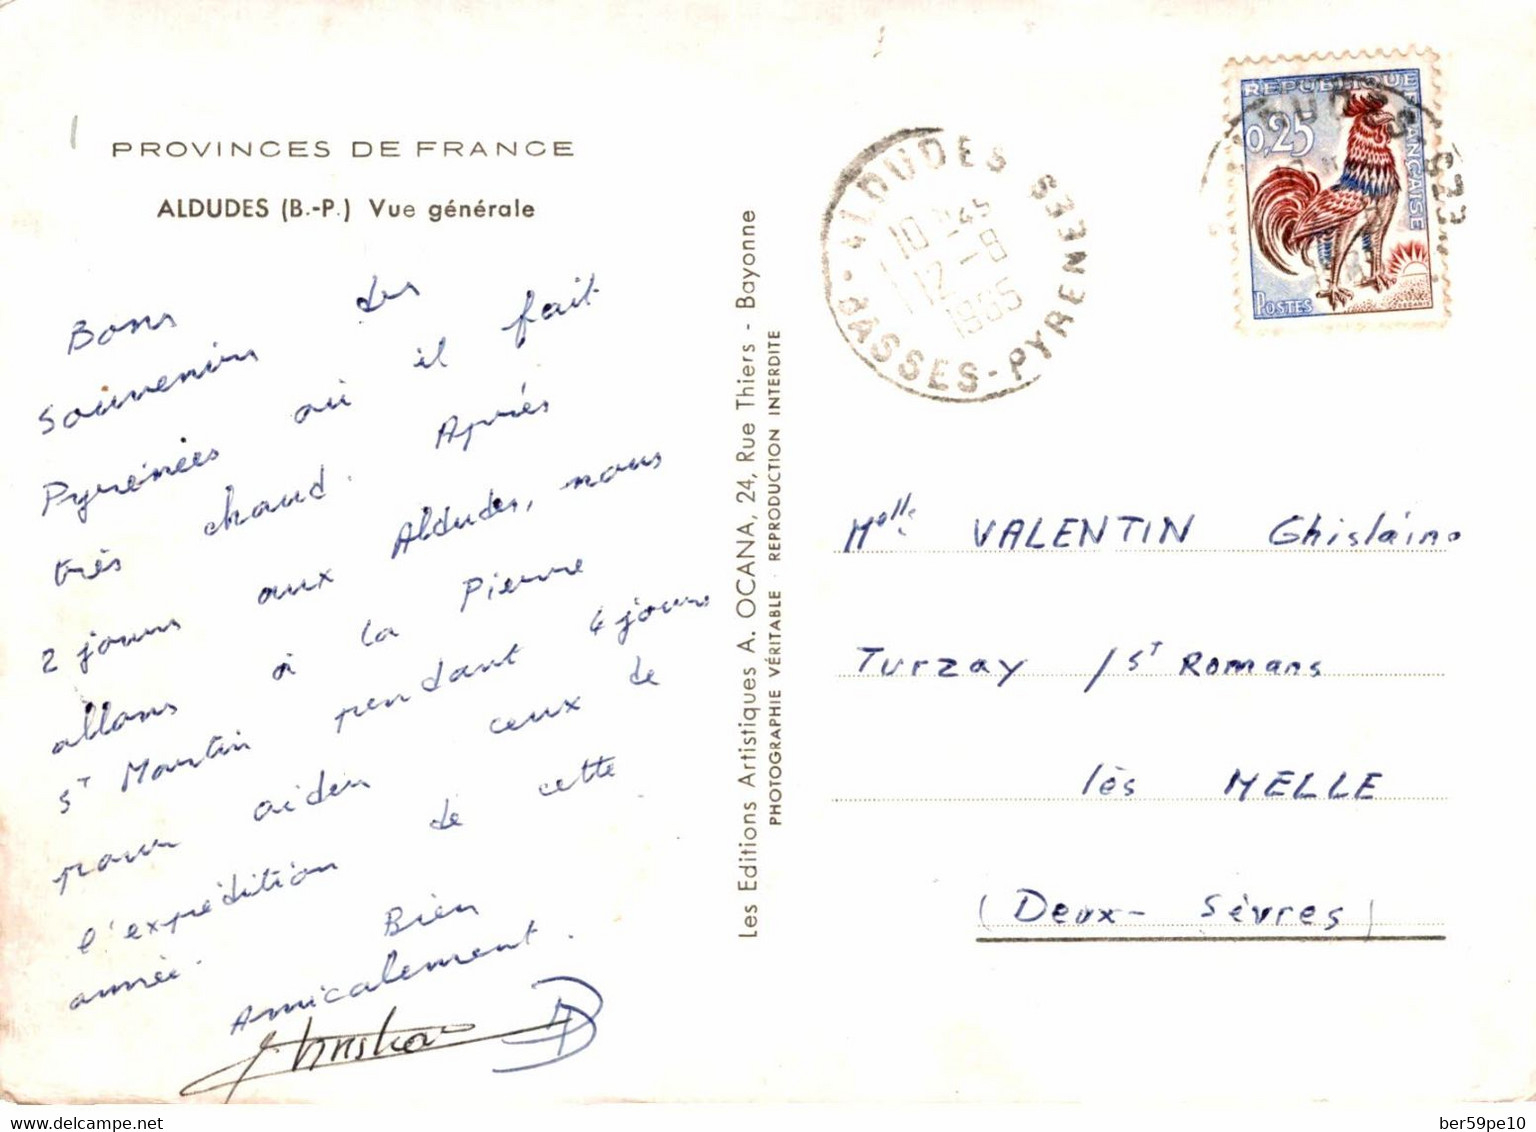 PROVINCES DE FRANCE
ALDUDES (B.-P.) Vue générale
Bons
souvenirs des
Pyrénées où il fait
très chaud. Après
2 jours aux Aldudes, nous
allons à la Pierre
St Martin pendant 4 jours
pour aider ceux de
l'expédition de cette
année. Bien
Amicalement.
Les Editions Artistiques A. OCANA, 24, Rue Thiers - Bayonne
PHOTOGRAPHIE VÉRITABLE · REPRODUCTION INTERDITE
ALDUDES
BASSES-PYRENEES
10 H45
12-8
1965
REPUBLIQUE FRANÇAISE
0,25
POSTES
Melle VALENTIN Ghislaine
Turzay / St Romans
lès MELLE
(Deux-Sèvres)
delcampe.net
ber59pe10